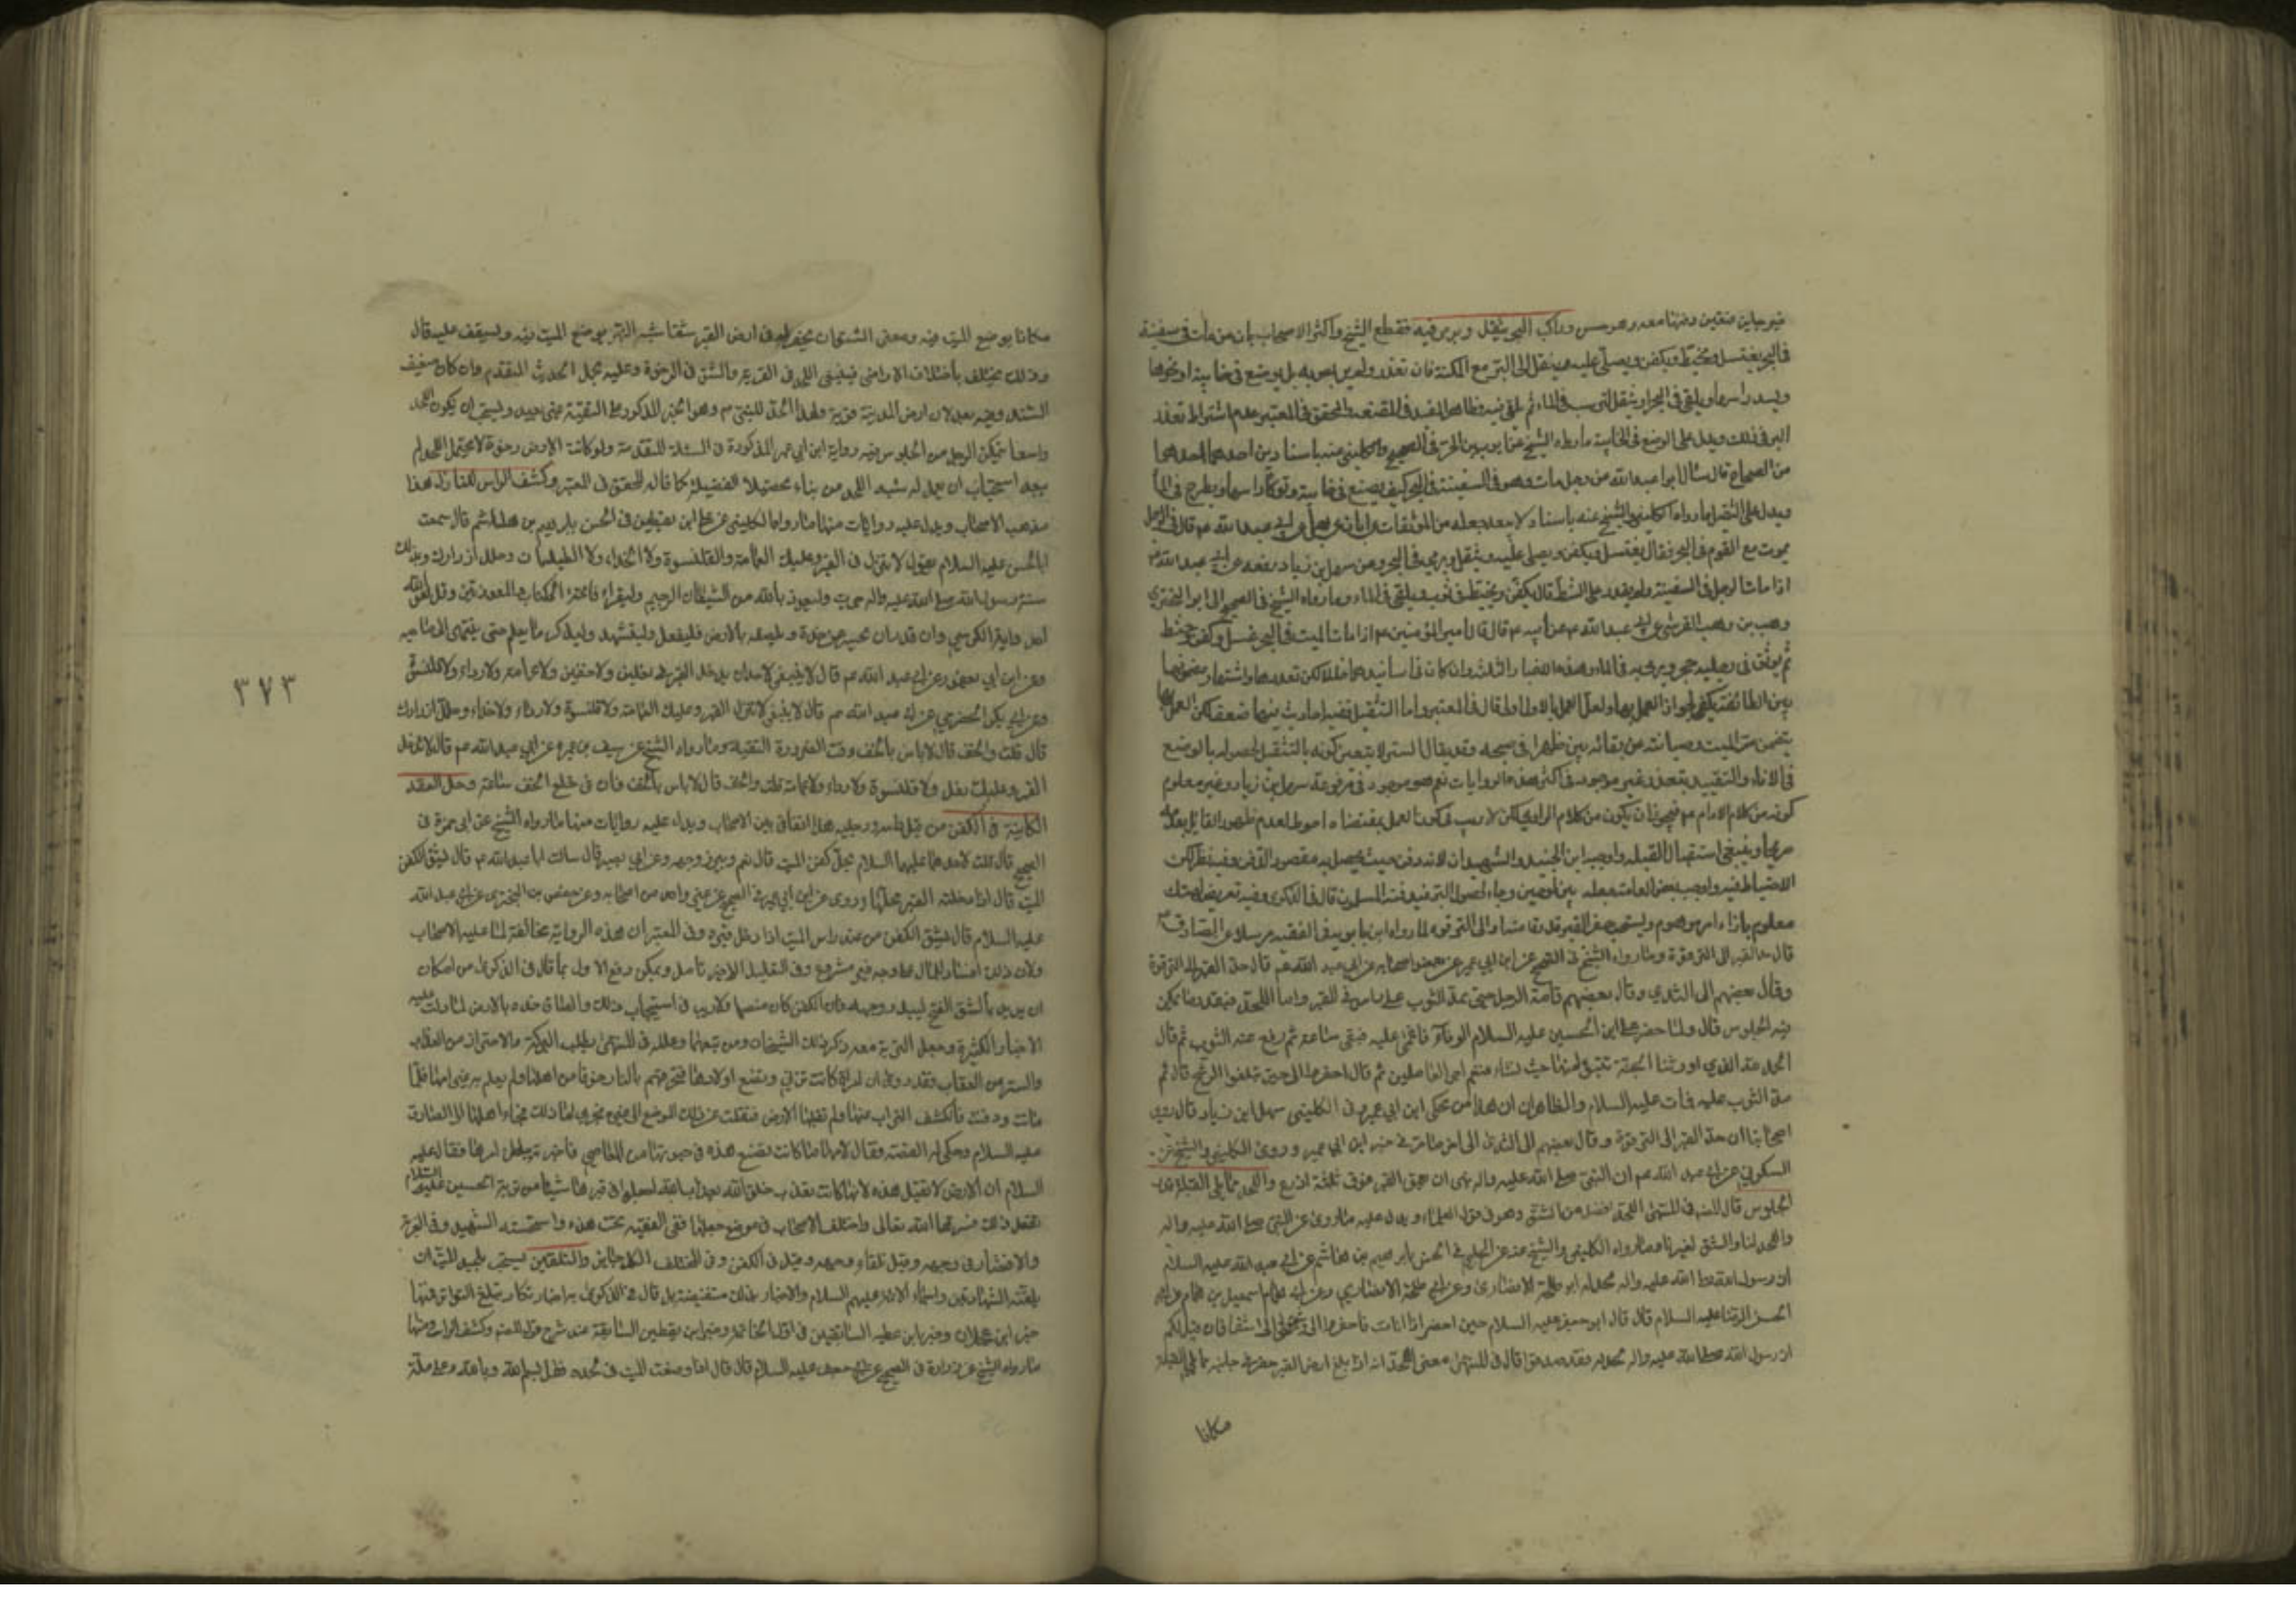 وراكب البحر يثقل ويرمى فيه فقطع الشيخ واكثر الاصحاب بان من مات في سفينة
في البحر يغسل ويحنط ويكفن ويصلى عليه وينقل الى البر مع المكنة فان تعذر بل يوضع في خابية او نحوها
ويسد راسها ويلقى في البحر او يثقل ثم يلقى فيه وظاهر المفيد في المقنعة والمحقق في المعتبر عدم اشتراط تعذر
البر في ذلك ويدل على الوضع في الخابية ما رواه الشيخ عن ايوب بن الحر في الصحيح والكليني عنه باسنادين احدهما
من الصحاح قال سئال ابو عبد الله عن رجل مات وهو في السفينة في البحر كيف يصنع في خابية وتوكأ راسها ويطرح في الماء
ويدل على التثقيل ما رواه الكليني والشيخ عنه باسناد عبد الله عم قال في الرجل
يموت مع القوم في البحر فقال يغسل ويكفن ويصلى عليه ويثقل ويرمى في البحر وعن سهل بن زياد رفعه عن ابي عبد الله عم
اذا مات الرجل في السفينة ولم يقدر على الشط قال يكفن ويحنط في ثوب ويلقى في الماء وما رواه الشيخ في الصحيح الى ابو البختري
وهب بن وهب القرشي عن ابي عبد الله عم عن ابيه عم قال قال امير المؤمنين عم اذا مات الميت في البحر غسل وكفن وحنط
ثم يوثق في رجليه حجر ويرمى به في الماء وهذه الاخبار الثلثة وان كان في اسانيدها خلل لكن تعددها واشتهار مضمونها
بين الطائفة يكفي لجواز العمل بها ولعل العمل بالاول اولى قال في المعتبر واما التثقيل ففيه احاديث فيها ضعف لكن العمل بها
يتضمن ستر الميت وصيانته عن بقائه بين ظهرا في صحبه وقد يقال الستر لا يتعين كونه بالتثقيل لحصوله بالوضع
في الاناء والتقييد بتعذر غير موجود في اكثر هذه الروايات نعم هو موجود في مرفوعة سهل بن زياد وغير معلوم
كونه من كلام الامام عم فيجوز ان يكون من كلام الراوي لكن لا ريب في كون العمل بمقتضاه احوط لعدم ظهور القايل بعدمه
صريحا وينبغي استقبال القبلة واوجبه ابن الجنيد والشهيدان لانه دفن حيث يحصل به مقصود الدفن وفيه نظر لكن
الاحتياط فيه واوجب بعض العامة جعله بين لوحين رجاء لحصول البر فيدفنه المسلمون قال في الذكرى وفيه تعريض لهتك
معلوم بازاء امر موهوم ويستحب حفر القبر قدر قامة او الى الترقوة لما رواه ابن بابويه في الفقيه مرسلا عن الصادق عم
قال حد القبر الى الترقوة وما رواه الشيخ في الصحيح عن ابن ابي عمير عن بعض اصحابه عن ابي عبد الله عم قال حد القبر الى الترقوة
وقال بعضهم الى الثدي وقال بعضهم قامة الرجل حتى يمد الثوب على راس من في القبر واما اللحد فبقدر ما يمكن
فيه الجلوس قال ولما حضر علي ابن الحسين عليه السلام الوفاة اغمي عليه فبقي ساعة ثم رفع عنه الثوب ثم قال
الحمد لله الذي اورثنا الجنة نتبوء منها حيث نشاء فنعم اجر العاملين ثم قال احفروا لي حتى تبلغوا الرشح قال ثم
مد الثوب عليه فمات عليه السلام والظاهر ان هذا من محكي ابن ابي عمير وفي الكليني سهل ابن زياد قال روى
اصحابنا ان حد القبر الى الترقوة وقال بعضهم الى الثدي الى اخر ما مر في خبر ابن ابي عمير وروى الكليني والشيخ عن
السكوني عن ابي عبد الله عم ان النبي صلى الله عليه واله نهى ان يعمق القبر فوق ثلثة اذرع واللحد مما يلي القبلة
الجلوس قال المصنف في المنتهى اللحد افضل من الشق وهو في قول العلماء ويدل عليه ما روى عن النبي صلى الله عليه واله
واللحد لنا والشق لغيرنا وما رواه الكليني والشيخ عنه عن الحلبي في الحسن بابرهيم بن هاشم عن ابي عبد الله عليه السلام
ان رسول الله صلى الله عليه واله لحد له ابو طلحة الانصاري وعن ابي همام اسمعيل بن همام عن ابي
الحسن الرضا عليه السلام قال قال ابو جعفر عليه السلام حين احضر اذا انا مت فاحفروا لي وشقوا لي شقا فان قيل لكم
ان رسول الله صلى الله عليه واله لحد له فقد صدقوا قال في المنتهى معنى اللحد انه اذا بلغ ارض القبر حفر في جانبه مما يلي القبلة
مكانا
مكانا يوضع الميت فيه ومعنى الشق ان يحفر في ارض القبر شقا شبه النهر يوضع الميت فيه ويسقف عليه قال
وذلك يختلف باختلاف الاراضي فينبغي اللحد في القوية والشق في الرخوة وعليه يحمل الحديث المتقدم وان كان ضعيف
السند وفيه بعد لان ارض المدينة قوية ولهذا الحد للنبي ص وهو الخبر المذكور على التقية بعيد ويستحب ان يكون اللحد
واسعا يتمكن الرجل من الجلوس فيه رواية ابن ابي عمير المذكورة في المسئلة المتقدمة ولو كانت الارض رخوة لا تحتمل اللحد لم
يبعد استحباب ان يعمل له شبه اللحد من بناء تحصيلا للفضيلة كما قاله المحقق في المعتبر وكشف الراس للنازل هذا
مذهب الاصحاب ويدل عليه روايات منها ما رواه الكليني عن علي ابن يقطين في الحسن بابرهيم بن هاشم قال سمعت
ابا الحسن عليه السلام يقول لا تنزل في القبر وعليك العمامة والقلنسوة ولا الحذاء ولا الطيلسان وحلل ازرارك وبذلك
سنة رسول الله صلى الله عليه واله جرت وليعوذ بالله من الشيطان الرجيم وليقراء فاتحة الكتاب والمعوذتين وقل هو الله
احد واية الكرسي وان قدر ان يحسر عن خده ويلصقه بالارض فليفعل وليتشهد وليذكر ما يعلم حتى ينتهي الى صاحبه
وعن ابن ابي يعفور عن ابي عبد الله عم قال لا ينبغي لاحد ان يدخل القبر في نعلين ولا خفين ولا عمامة ولا رداء ولا قلنسوة
وعن ابي بكر الحضرمي عن ابي عبد الله عم قال لا ينزل القبر وعليك العمامة ولا قلنسوة ولا رداء ولا حذاء وحلل ازرارك
قال قلت والخف قال لا باس بالخف وقت الضرورة والتقية وما رواه الشيخ عن سيف بن عميرة عن ابي عبد الله عم قال لا تدخل
القبر وعليك نعل ولا قلنسوة ولا رداء ولا عمامة قلت والخف قال لا باس بالخف فان في خلع الخف شناعة وحل العقد
الكاينة في الكفن من قبل راسه ورجليه هذا اتفاق بين الاصحاب ويدل عليه روايات منها ما رواه الشيخ عن ابي حمزة في
الصحيح قال قلت لاحدهما عليهما السلام يحل كفن الميت قال نعم ويبرز وجهه وعن ابي بصير قال سالت ابا عبد الله عم قال
الميت قال اذا ادخلته القبر فحلها وروى عن ابن ابي عمير في الصحيح عن غير واحد من اصحابه وعن حفص بن البختري عن ابي عبد الله
عليه السلام قال يشق الكفن من عند راس الميت اذا دخل قبره وفي المعتبر ان هذه الرواية مخالفة لما عليه الاصحاب
ولان ذلك افساد للمال على وجه غير مشروع وفي التعليل الاخير تامل ويمكن دفع الاول بما قال في الذكرى من امكان
ان يريد بالشق الفتح ليبدو وجهه فان الكفن كان منضما ولا ريب في استحباب ذلك والصاق خده بالارض لما دلت عليه
الاخبار الكثيرة وجعل التربة معه ذكر ذلك الشيخان ومن تبعهما وعلله في المنتهى بطلب البركة والاحتراز من العذاب
والستر من العقاب فقد روى ان امراة كانت تزني وتضع اولادها فتحرقهم بالنار خوفا من اهلها ولم يعلم به غير امها فلما
ماتت ودفنت فانكشف التراب عنها ولم تقبلها الارض فنقلت عن ذلك الموضع الى غيره فجرى لها ذلك فجاء اهلها الى الصادق
عليه السلام وحكى له القصة فقال لامها ما كانت تصنع هذه في حيوتها من المعاصي فاخبرته بباطن امرها فقال عليه
السلام ان الارض لا تقبل هذه لانها كانت تعذب خلق الله بعذاب الله اجعلوا في قبرها شيئا من تربة الحسين عليه السلام
ففعل ذلك فسترها الله تعالى واختلف الاصحاب في موضع جعلها ففي الفقيه تحت خده واستحسنه الشهيد وفي العزية
والاقتصاد في وجهه وقيل تلقاء وجهه وقيل في الكفن وفي المختلف الكل جايز والتلقين يستحب للميت ان
يلقنه الشهادتين واسماء الائمة عليهم السلام والاخبار بذلك مستفيضة بل قال في الذكرى به اخبار تكاد تبلغ التواتر فمنها
خبر ابن عجلان وخبر ابن عطية السابقين في اول الخاتمة وخبر ابن يقطين السابقة عند شرح قول المصنف وكشف الراس ومنها
ما رواه الشيخ عن زرارة في الصحيح عن ابي جعفر عليه السلام قال قال اذا وضعت الميت في لحده فقل بسم الله وبالله وعلى ملة
٣٧٣